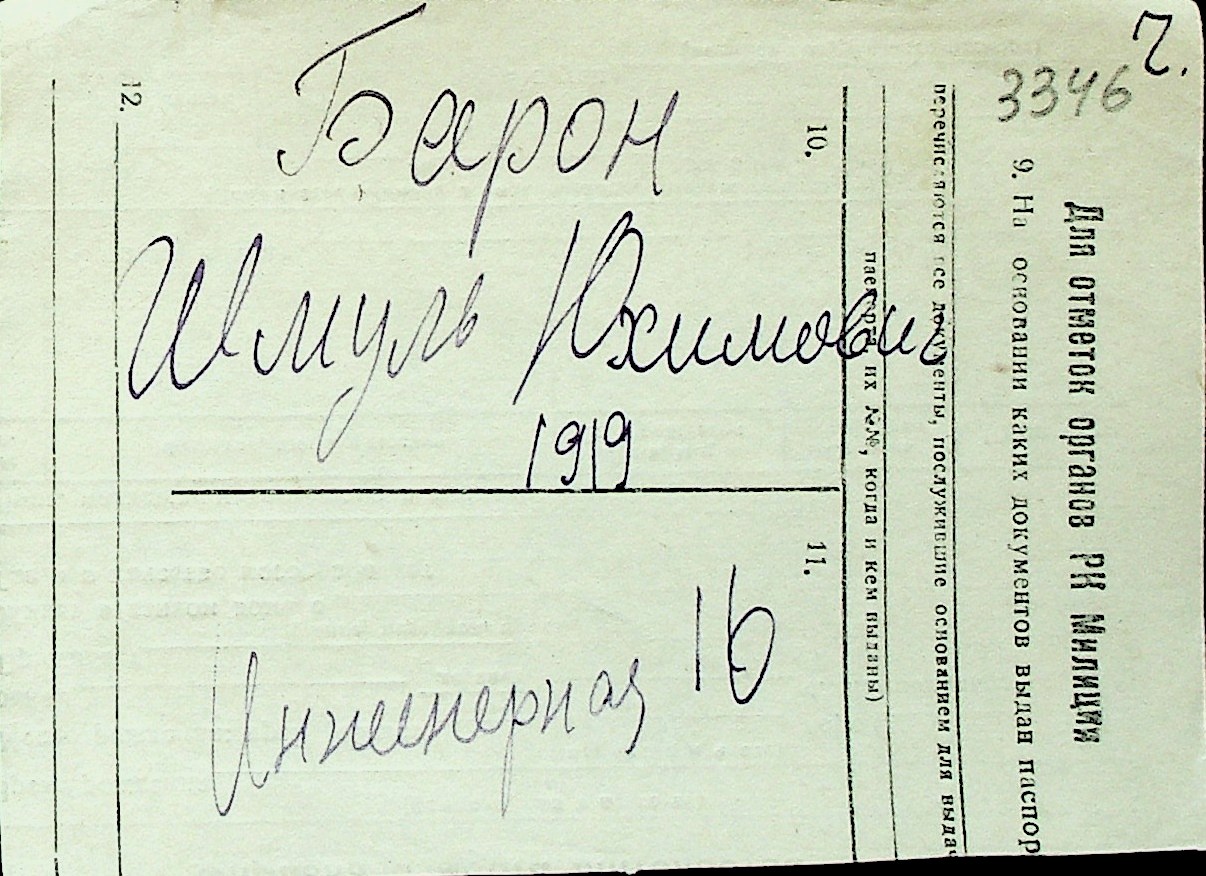 Ч.
3346
Барон
Шмуль Юхимович
1919
Инженерная 16
Для отметок органов РК Милиции
9. На основании каких документов выдан паспор
перечисляются все документы, послужившие основанием для выдач
паспорта, их №№, когда и кем выданы)
10.
11.
12.